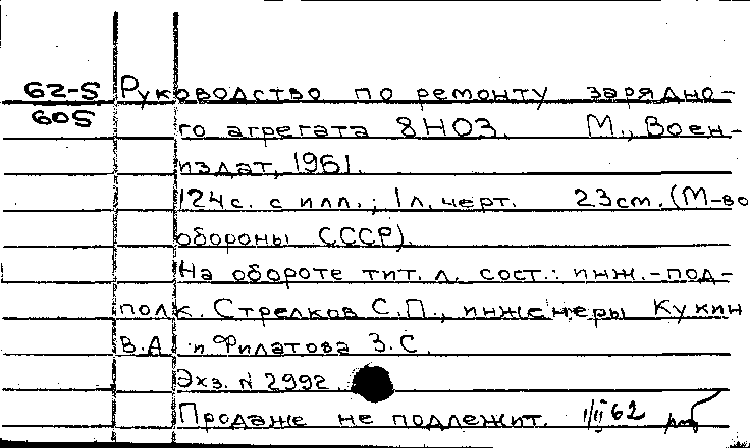 62-5 Руководство по ремонту зарядно-
605 го агрегата 8Н03. М., Воен-
издат, 1961.
124с. с илл.; 1 л. черт. 23см. (М-во
обороны СССР).
На обороте тит. л. сост.: инж.-под-
полк. Стрелков С.П., инженеры Кукин
В.А. и Филатова З.С.
Экз. № 2992.
Продаже не подлежит. 1/II 62